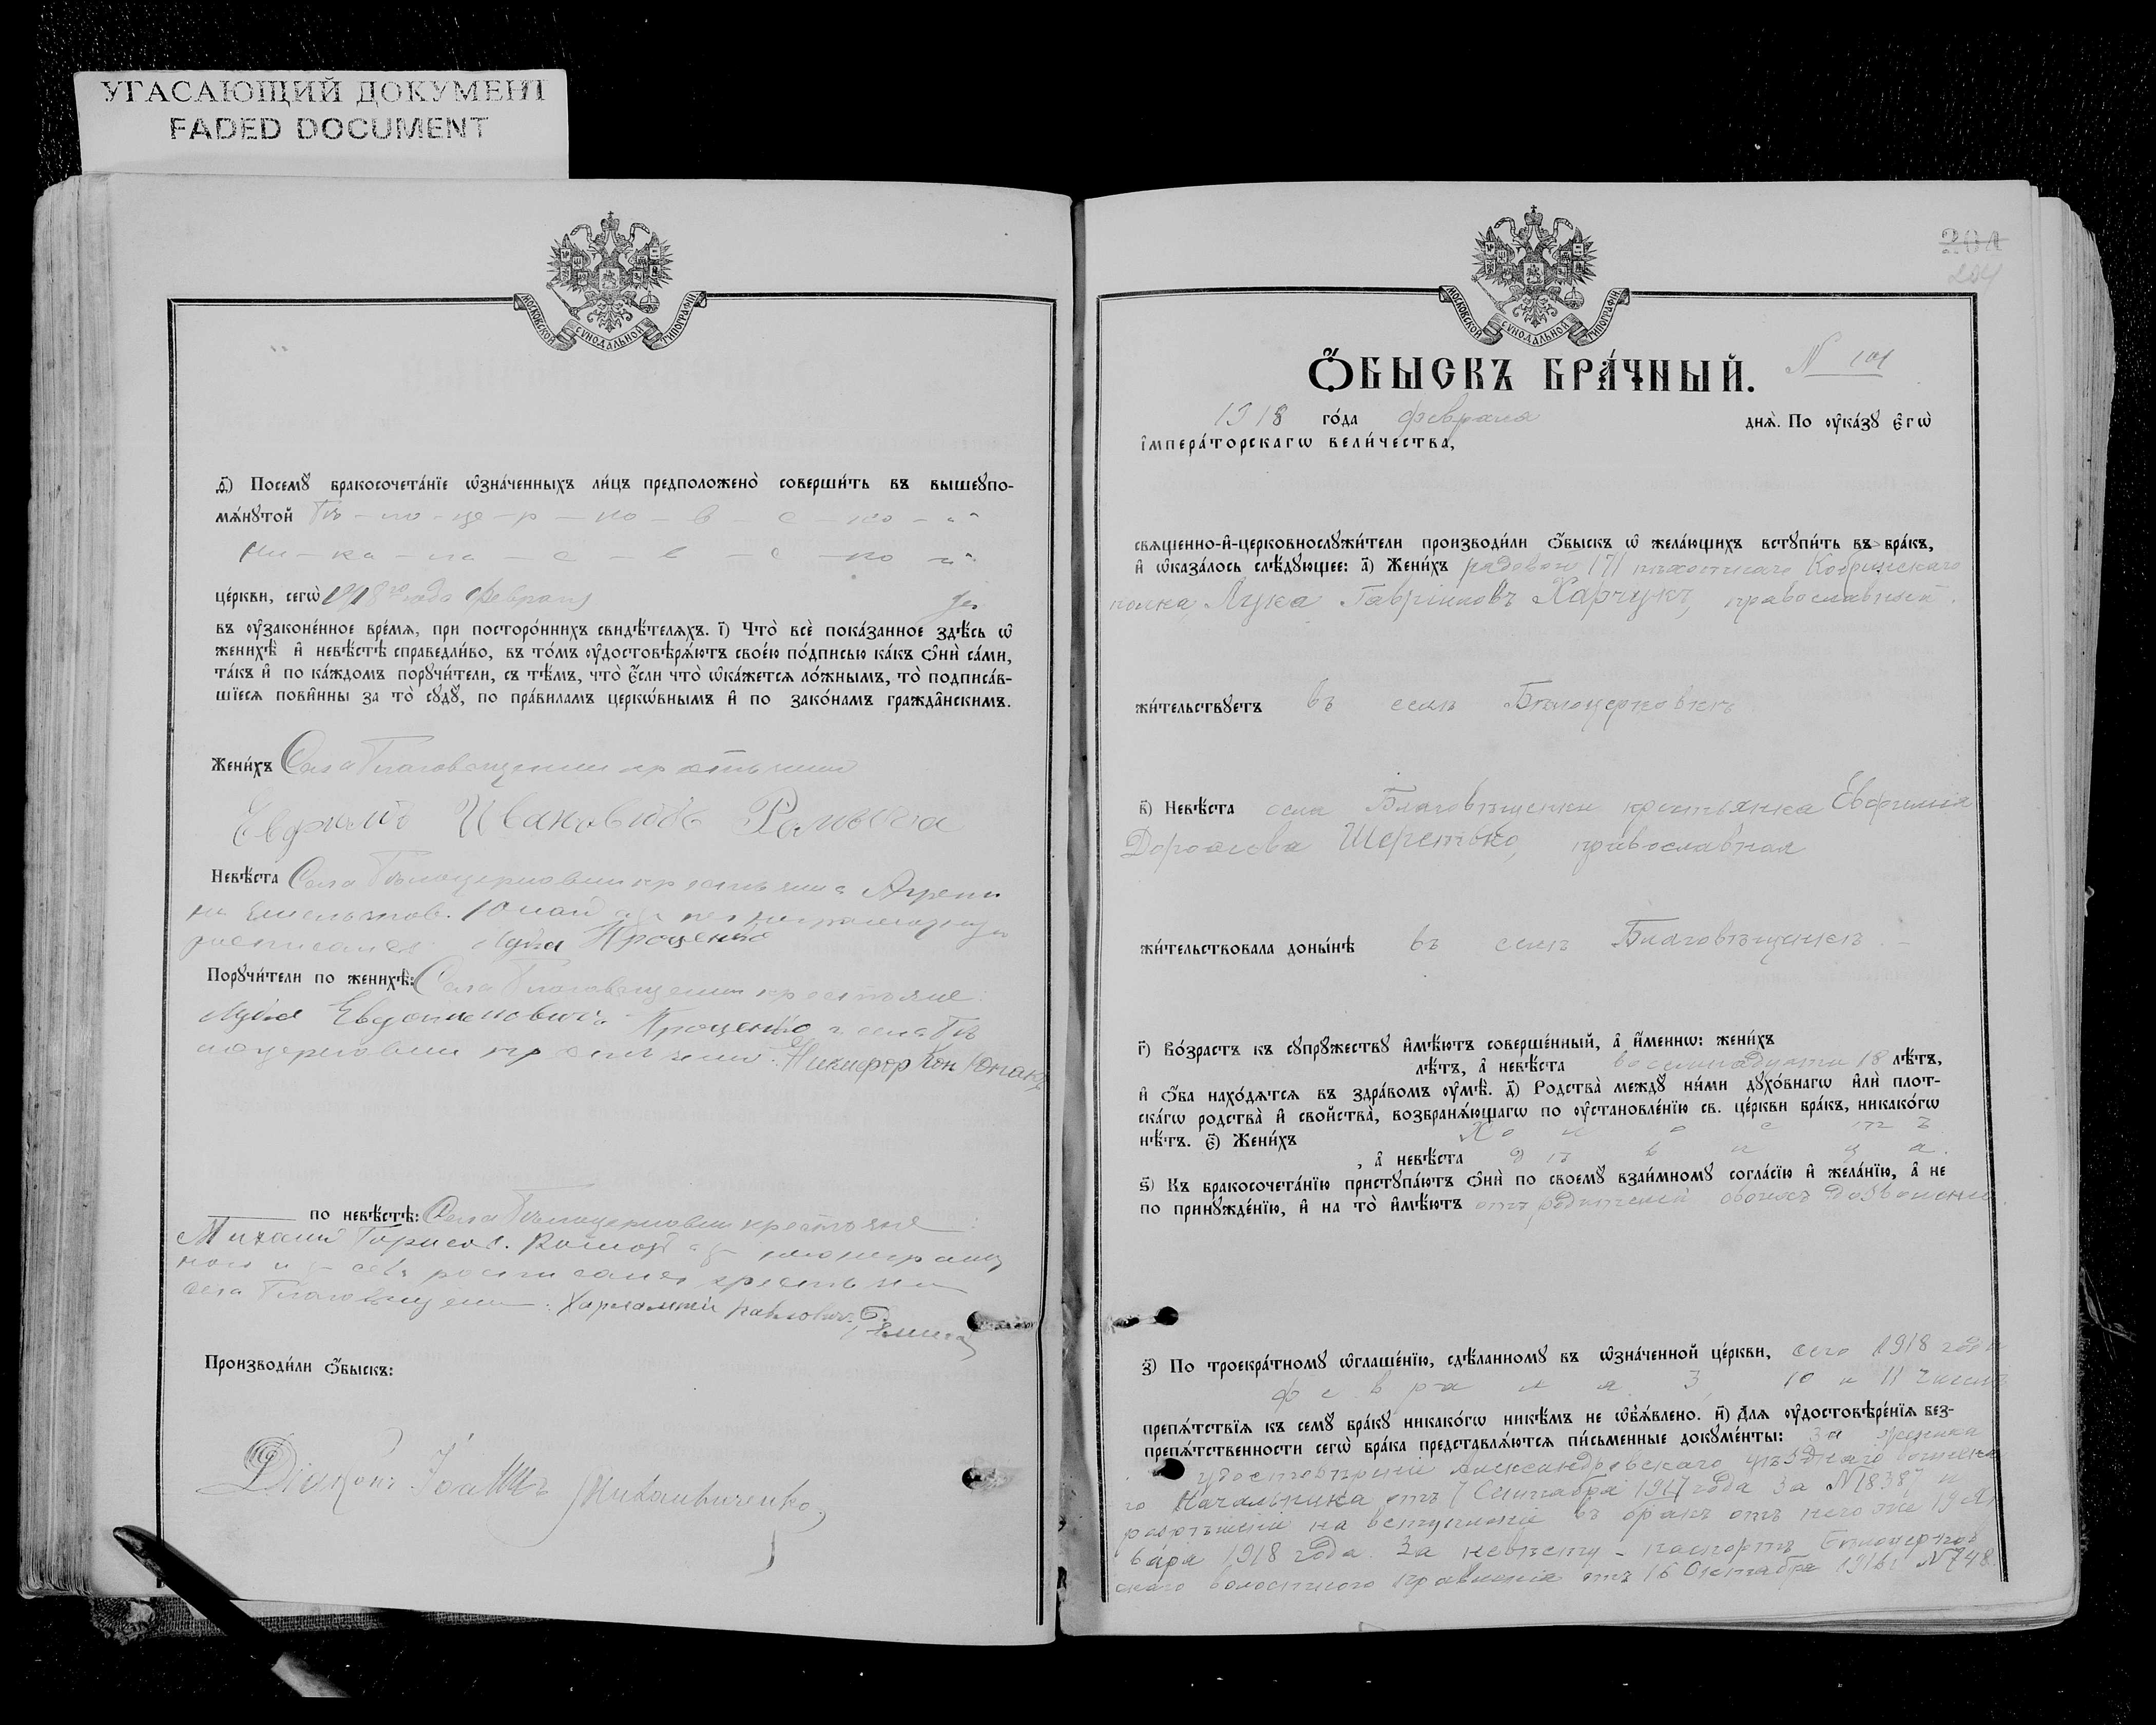 УГАСАЮЩИЙ ДОКУМЕНТ
FADED DOCUMENT
МОСКОВСКОЙ СѴНОДАЛЬНОЙ ТИПОГРАФІИ
ѳ҃) Посемꙋ бракосочета́нїе ѡ҆зна́ченныхъ ли́цъ предположено̀ соверши́ть въ вышеꙋпо-
мѧ́нꙋтой Бѣ-ло-це-р-ко-в-с-ко-й
Ни-ко-ла-е-в-с-ко-й
це́ркви, сегѡ̀ 1918 го года Февраля дня
въ ᲂу҆зако́ненное вре́мѧ, при посторо́ннихъ свидѣ́телѧхъ. і҃) Что̀ всѐ пока́занное здѣ́сь ѡ҆
женихѣ̀ и҆ невѣ́стѣ справедли́во, въ то́мъ ᲂу҆достовѣрѧ́ютъ свое́ю по́дписью ка́къ ѻ҆нѝ са́ми,
та́къ и҆ по ка́ждомъ порꙋчи́тели, съ тѣ́мъ, что̀ є҆́сли что̀ ѡ҆ка́жетсѧ ло́жнымъ, то̀ подписа́в-
шїесѧ пови́нны за то̀ сꙋдꙋ̀, по пра́виламъ церко́внымъ и҆ по зако́намъ гражда́нскимъ.
Жени́хъ Села Благовещенки крестьянин
Евфимій Ивановичъ
Невѣ́ста Села Бѣлоцерковки крестьянка Агрепи
на неграмотную
росписался Лука Проценко
Порꙋчи́тели по женихѣ̀: Села Благовещенки крестьяне:
Лука Проценко и села Бѣ
лоцерковки крестьянин: Никифор Кон
по невѣ́стѣ: Села Бѣлоцерковки крестьяне:
Михаил Борисов. неграмот
ного и за себя росписался крестьянин
села Благовещенки: Харлампій Павлович
Производи́ли ѻ҆́быскъ:
Діаконъ Іоаннъ
МОСКОВСКОЙ СѴНОДАЛЬНОЙ ТИПОГРАФІИ
201
201
Ѻ҆́БЫСКЪ БРА́ЧНЫЙ. N 101
1918 го́да февраля днѧ̀. По ᲂу҆ка́зꙋ є҆гѡ̀
і҆мпера́торскагѡ вели́чества,
свѧще́нно-и҆-церковнослꙋжи́тели производи́ли ѻ҆́быскъ ѡ҆ жела́ющихъ встꙋпи́ть въ бра́къ,
и҆ ѡ҆каза́лось слѣ́дꙋющее: а҃) Жени́хъ рядовой 171 пѣхотнаго Кобринскаго
полка, Лука Гавріиловъ Харчукъ, православный.
жи́тельствꙋетъ въ селѣ Бѣлоцерковкѣ
в҃) Невѣ́ста села Благовѣщенки крестьянка Евфимія
Дорофеева Шереметько, православная
жи́тельствовала доны́нѣ въ селѣ Благовѣщенкѣ
г҃) Во́зрастъ къ сꙋпрꙋ́жествꙋ и҆мѣ́ютъ соверше́нный, а҆ и҆́меннѡ: жени́хъ
лѣ́тъ, а҆ невѣ́ста восемнадцати 18 лѣ́тъ,
и҆ ѻ҆́ба нахо́дѧтсѧ въ здра́вомъ ᲂу҆мѣ̀. д҃) Родства̀ междꙋ̀ ни́ми дꙋхо́внагѡ и҆лѝ плот-
ска́гѡ родства̀ и҆ сво́йства, возбранѧ́ющагѡ по ᲂу҆становле́нїю св. це́ркви бра́къ, никако́гѡ
нѣ́тъ. є҃) Жени́хъ Х о л о с т ъ
, а҆ невѣ́ста д ѣ в и ц а.
ѕ҃) Къ бракосочета́нїю пристꙋпа́ютъ ѻ҆нѝ по своемꙋ̀ взаи́мномꙋ согла́сїю и҆ жела́нїю, а҆ не
по принꙋжде́нїю, и҆ на то̀ и҆мѣ́ютъ отъ родителей своихъ дозволеніе
з҃) По троекра́тномꙋ ѡ҆глаше́нїю, сдѣ́ланномꙋ въ ѡ҆зна́ченной це́ркви, сего 1918 года
ф е в р а л я 3, 10 и 11 чиселъ
препѧ́тствїѧ къ семꙋ̀ бра́кꙋ никако́гѡ никѣ́мъ не ѡ҆б̾ѧ́влено. и҃) Длѧ ᲂу҆достовѣре́нїѧ без-
препѧ́тственности сегѡ̀ бра́ка представлѧ́ютсѧ пи́сьменные докꙋме́нты: за жениха
удостовѣреніе Александровскаго уѣзднаго воинска
го Начальника отъ 7 Сентября 1917 года за N 1838, и
разрѣшеніе на вступленіе въ бракъ отъ него же 19 Ян
варя 1918 года. За невѣсту - паспортъ Бѣлоцерков
скаго волостного правленія отъ 16 Октября 1916 г N 748.